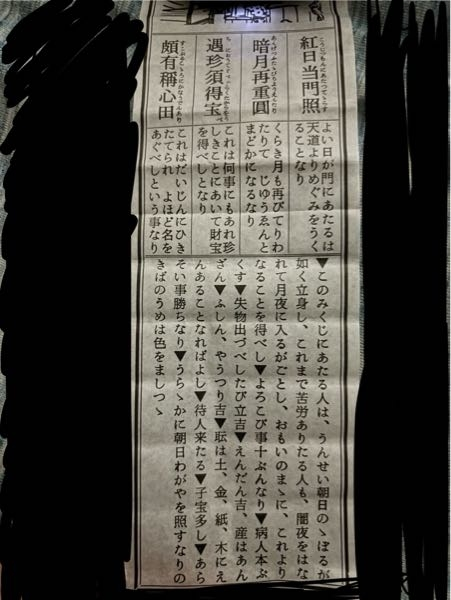 紅日当門照
よい日が門にあたるは
天道よりめぐみをうく
ることなり
暗月再重圓
くらき月も再びてりわ
たりて、じゆうゑんと
まどかになるなり
遇珍須得宝
これは何事にもあれ珍
しきことにおいて財宝
を得べしとなり
頗有稱心田
これはだいじんにひき
たてられ、よほど名を
あぐべしという事なり
▼このみくじにあたる人は、うんせい朝日のゝぼるが
如く立身し、これまで苦労ありたる人も、闇夜をはな
れて月夜に入るがごとし、おもいのまゝに、これより
なることを得べし▼よろこび事十ぶんなり▼病人本ぶ
くす▼失物出づべしたび立吉▼えんだん吉、産はあん
ざん▼ふしん、やうつり吉▼耺は土、金、紙、木にえ
んあることなればよし▼待人来たる▼子宝多し▼あら
そい事勝ちなり▼うらゝかに朝日わがやを照すなりの
きばのうめは色をましつゝ